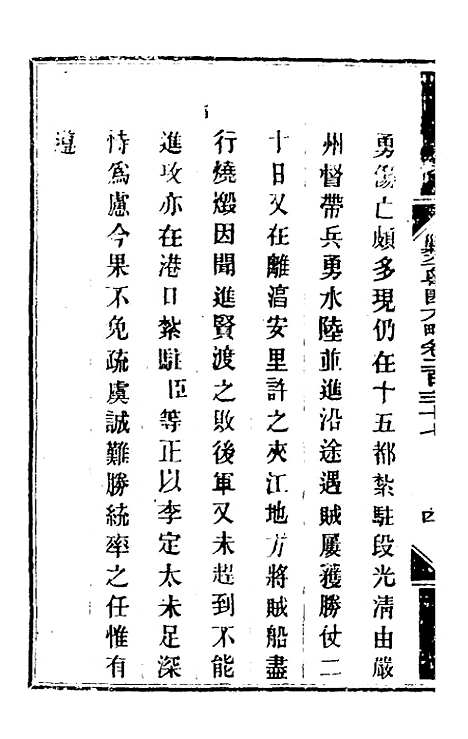 勇傷亡頗多現仍在十五都紮駐段光淸由嚴
州督帶兵勇水陸並進沿途遇賊屢獲勝仗二
十日又在離湻安里許之夾江地方將賊船盡
行燒燬因聞進賢渡之敗後軍又未趕到不能
進攻亦在港口紮駐臣等正以李定太未足深
恃爲慮今果不免疏虞誠難勝統率之任惟有
遵
四